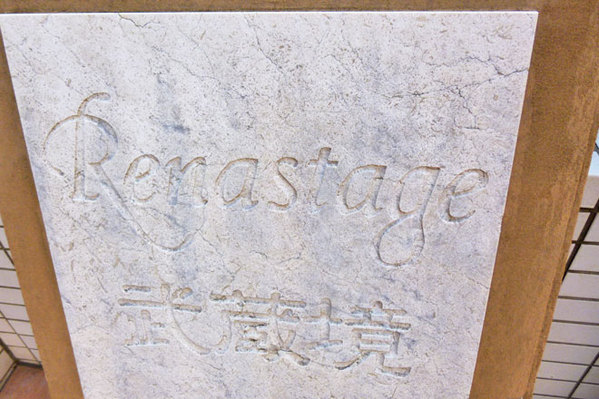 Renastage
武蔵境